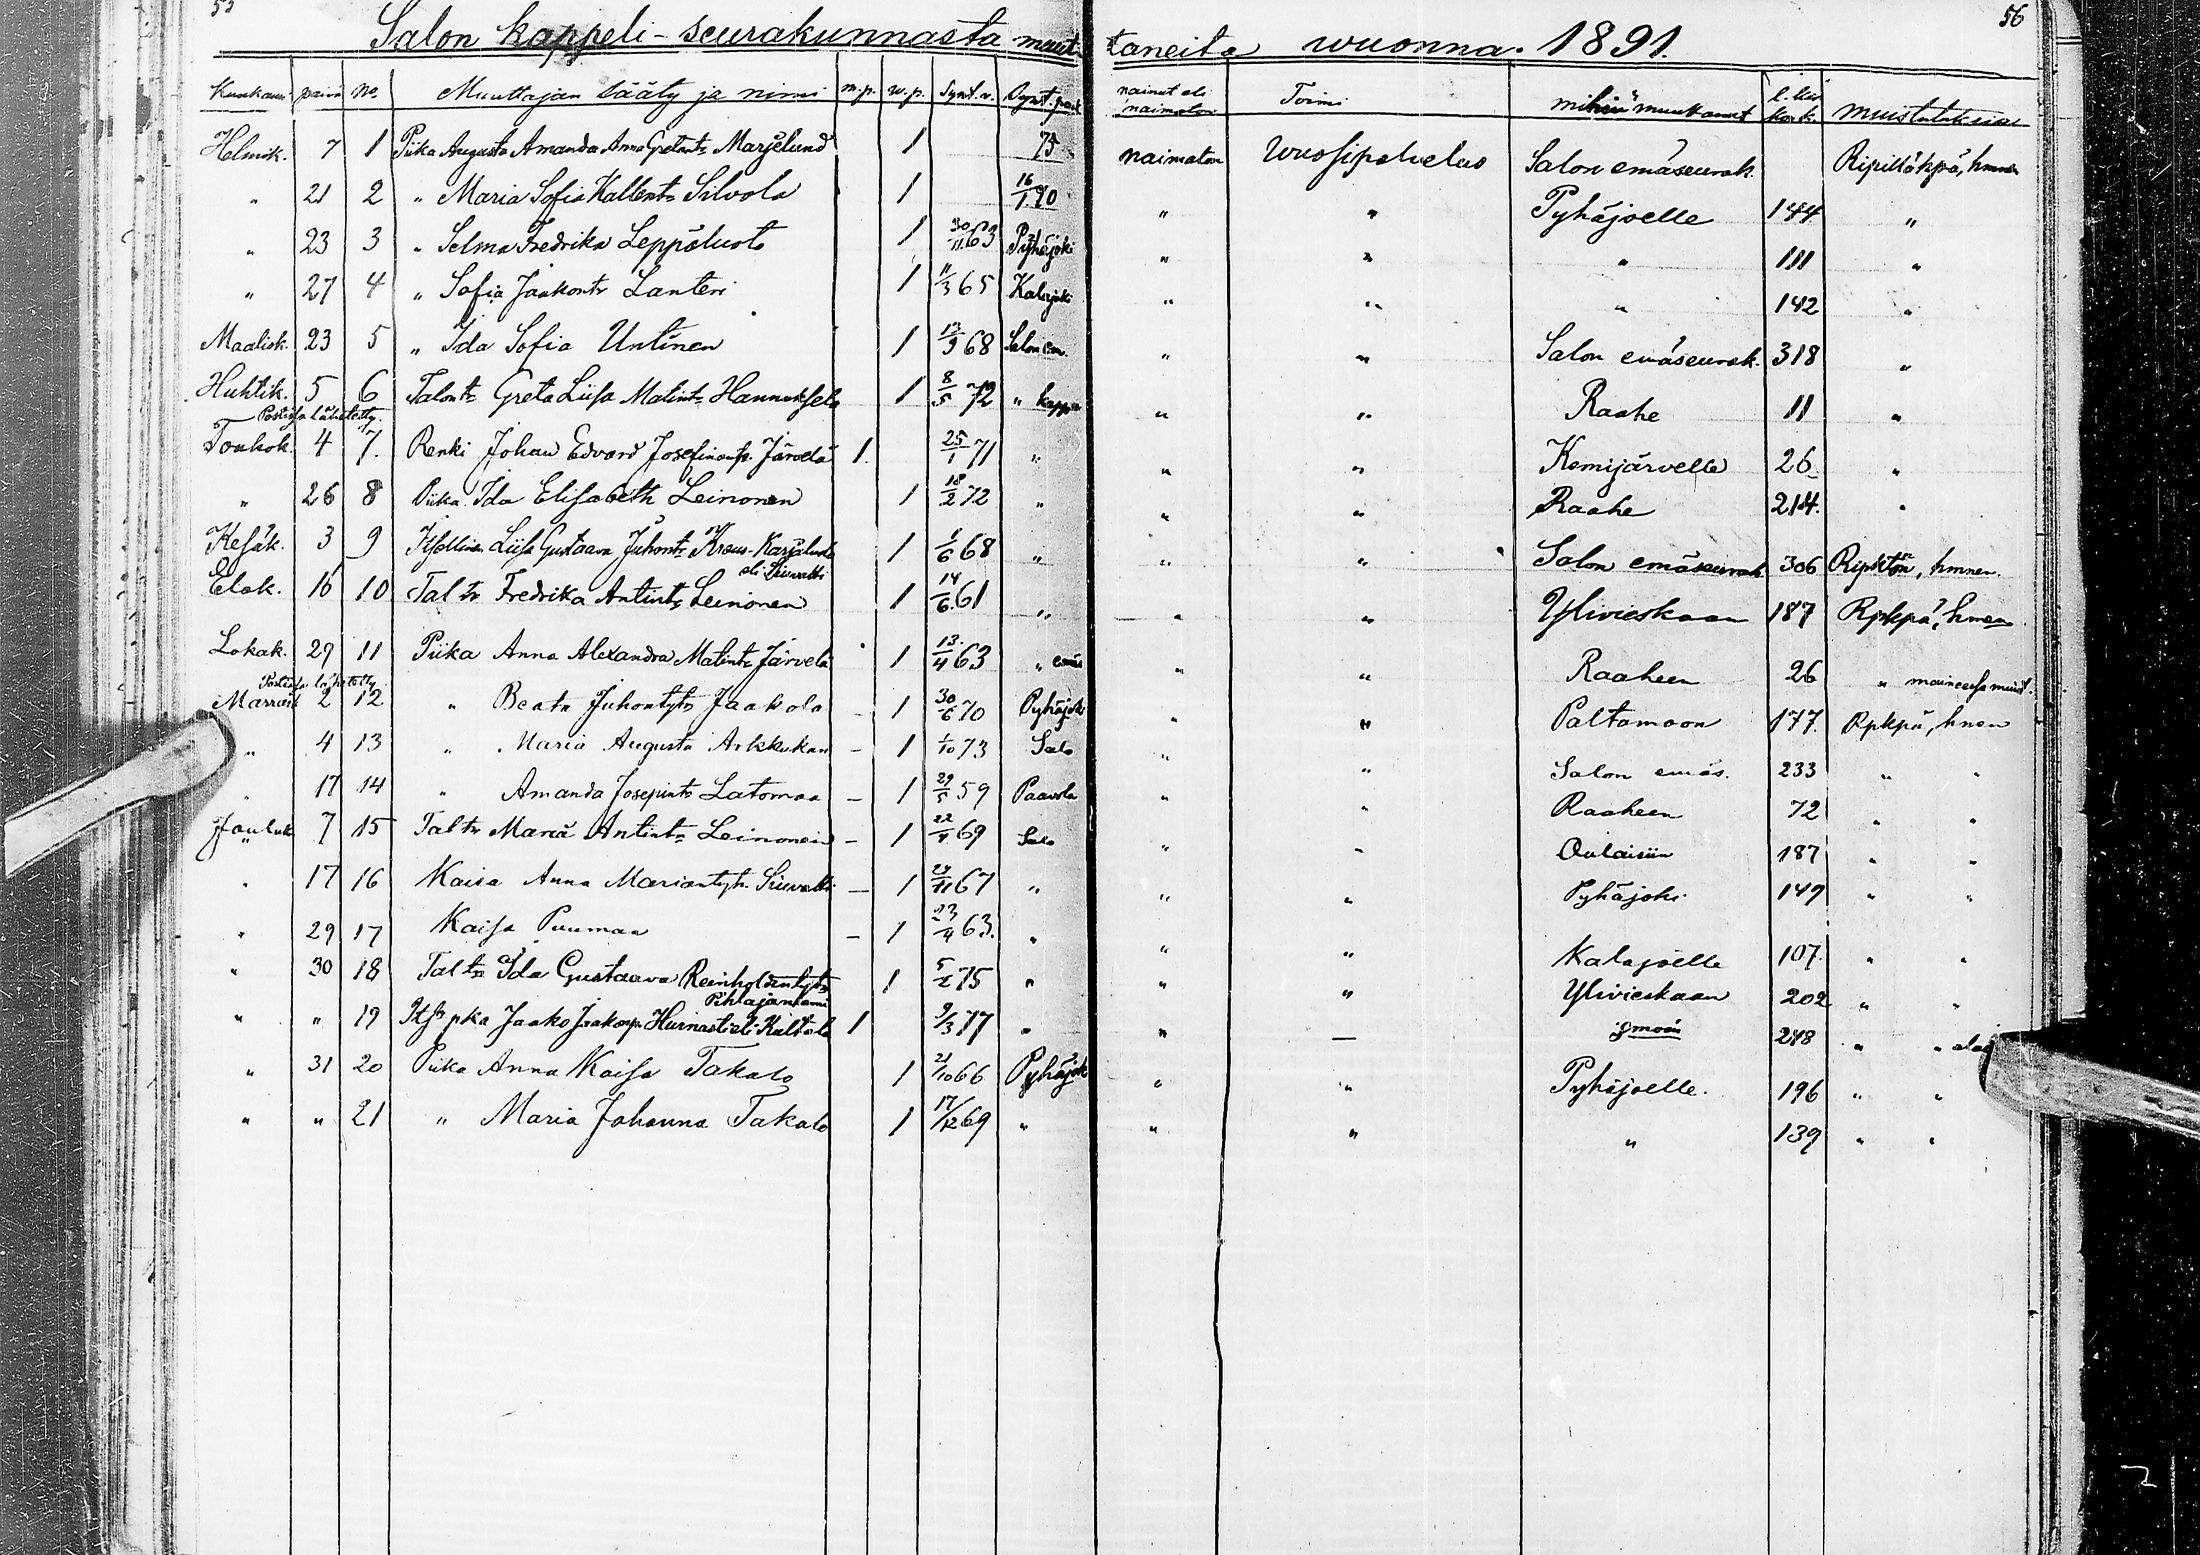 56
Salon kappeli-seurakunnasta muuttaneita wuonna. 1891.
Kuukausi päivä No. Muuttajan sääty ja nimi m.p. w.p. Synt.v. Synt. paik nainut eli naimaton Toimi mihin muuttanut l. kir. Muistutuksia
Helmik. 7 1 Piika Augusta Amanda Anna Gretant: Marjelund 1 75 naimaton Wuosipalvelus Salon emäseurak. Ripillä käpä, hmnen
" 21 2 " Maria Sofia Kallent: Silvola 1 16/1 70 " " Pyhäjoelle 144 "
" 23 3 " Selma Fredrika Leppäluoto 1 30/11 63 Pyhäjoki " " " 111 "
" 27 4 " Sofia Jaakontr Lanteri 1 11/3 65 Kalajoki " " " 142 "
Maalisk. 23 5 " Ida Sofia Untinen 1 13/9 68 Salon em. " " Salon emäseurak. 318 "
Huhtik. 5 6 Talont: Greta Liisa Matint: Hannuksela 1 8/5 72 " kappe " " Raahe 11 "
Postissa lähetetty
Toukok. 4 7. Renki Johan Edvard Josefinanp. Järvelä 1. 25/1 71 " " " Kemijärvelle 26 "
" 26 8 Piika Ida Elisabeth Leinonen 1 18/2 72 " " " Raahe 214. "
Kesäk. 3 9 Itsellinen Liisa Gustaava Juhont: Kraus-Karjaluoto 1 1/6 68 " " " Salon emäseurak 306 Ripktön, hmnen.
eli Siuvatti
Elok. 16 10 Tal tr Fredrika Antint: Leinonen 1 14/6 61 " " " Ylivieskaan 187 Rpkpä, hmen
Lokak. 29 11 Piika Anna Alexandra Matint: Järvelä 1 13/4 63 " emäs " " Raaheen 26 " maineessa muist.
Postissa lähetetty
Marrask 2 12 " Beata Juhontytr Jaakola – 1 30/6 70 Pyhäjoki " " Paltamoon 177. Rpkpä, hnen
" 4 13 " Maria Augusta Arkkukan – 1 1/10 73 Salo " " Salon emäs. 233 " "
" 17 14 " Amanda Josepint: Latomaa – 1 29/5 59 Paavola " " Raaheen 72 " "
Jouluk 7 15 Tal tr Maria Antint: Leinonen – 1 22/4 69 Salo " " Oulaisiin 187 " "
" 17 16 Kaisa Anna Mariantytr. Siuvatti – 1 24/11 67 " " " Pyhäjoki 149 " "
" 29 17 Kaisa Puumaa – 1 23/4 63. " " " Kalajoelle 107. " "
" 30 18 Tal tr Ida Gustaava Reinholdintytr 1 5/2 75 " " " Ylivieskaan 202 " "
Pihlajaniemi
" " 19 Itsn pka Jaako Jaakonp. Hurnasti eli Kultala 1 9/3 77 " " — 248 " "
" 31 20 Piika Anna Kaisa Takalo 1 21/10 66 Pyhäjok " " Pyhäjoelle. 196 " "
" " 21 " Maria Johanna Takalo 1 17/12 69 " " " " 139 " "